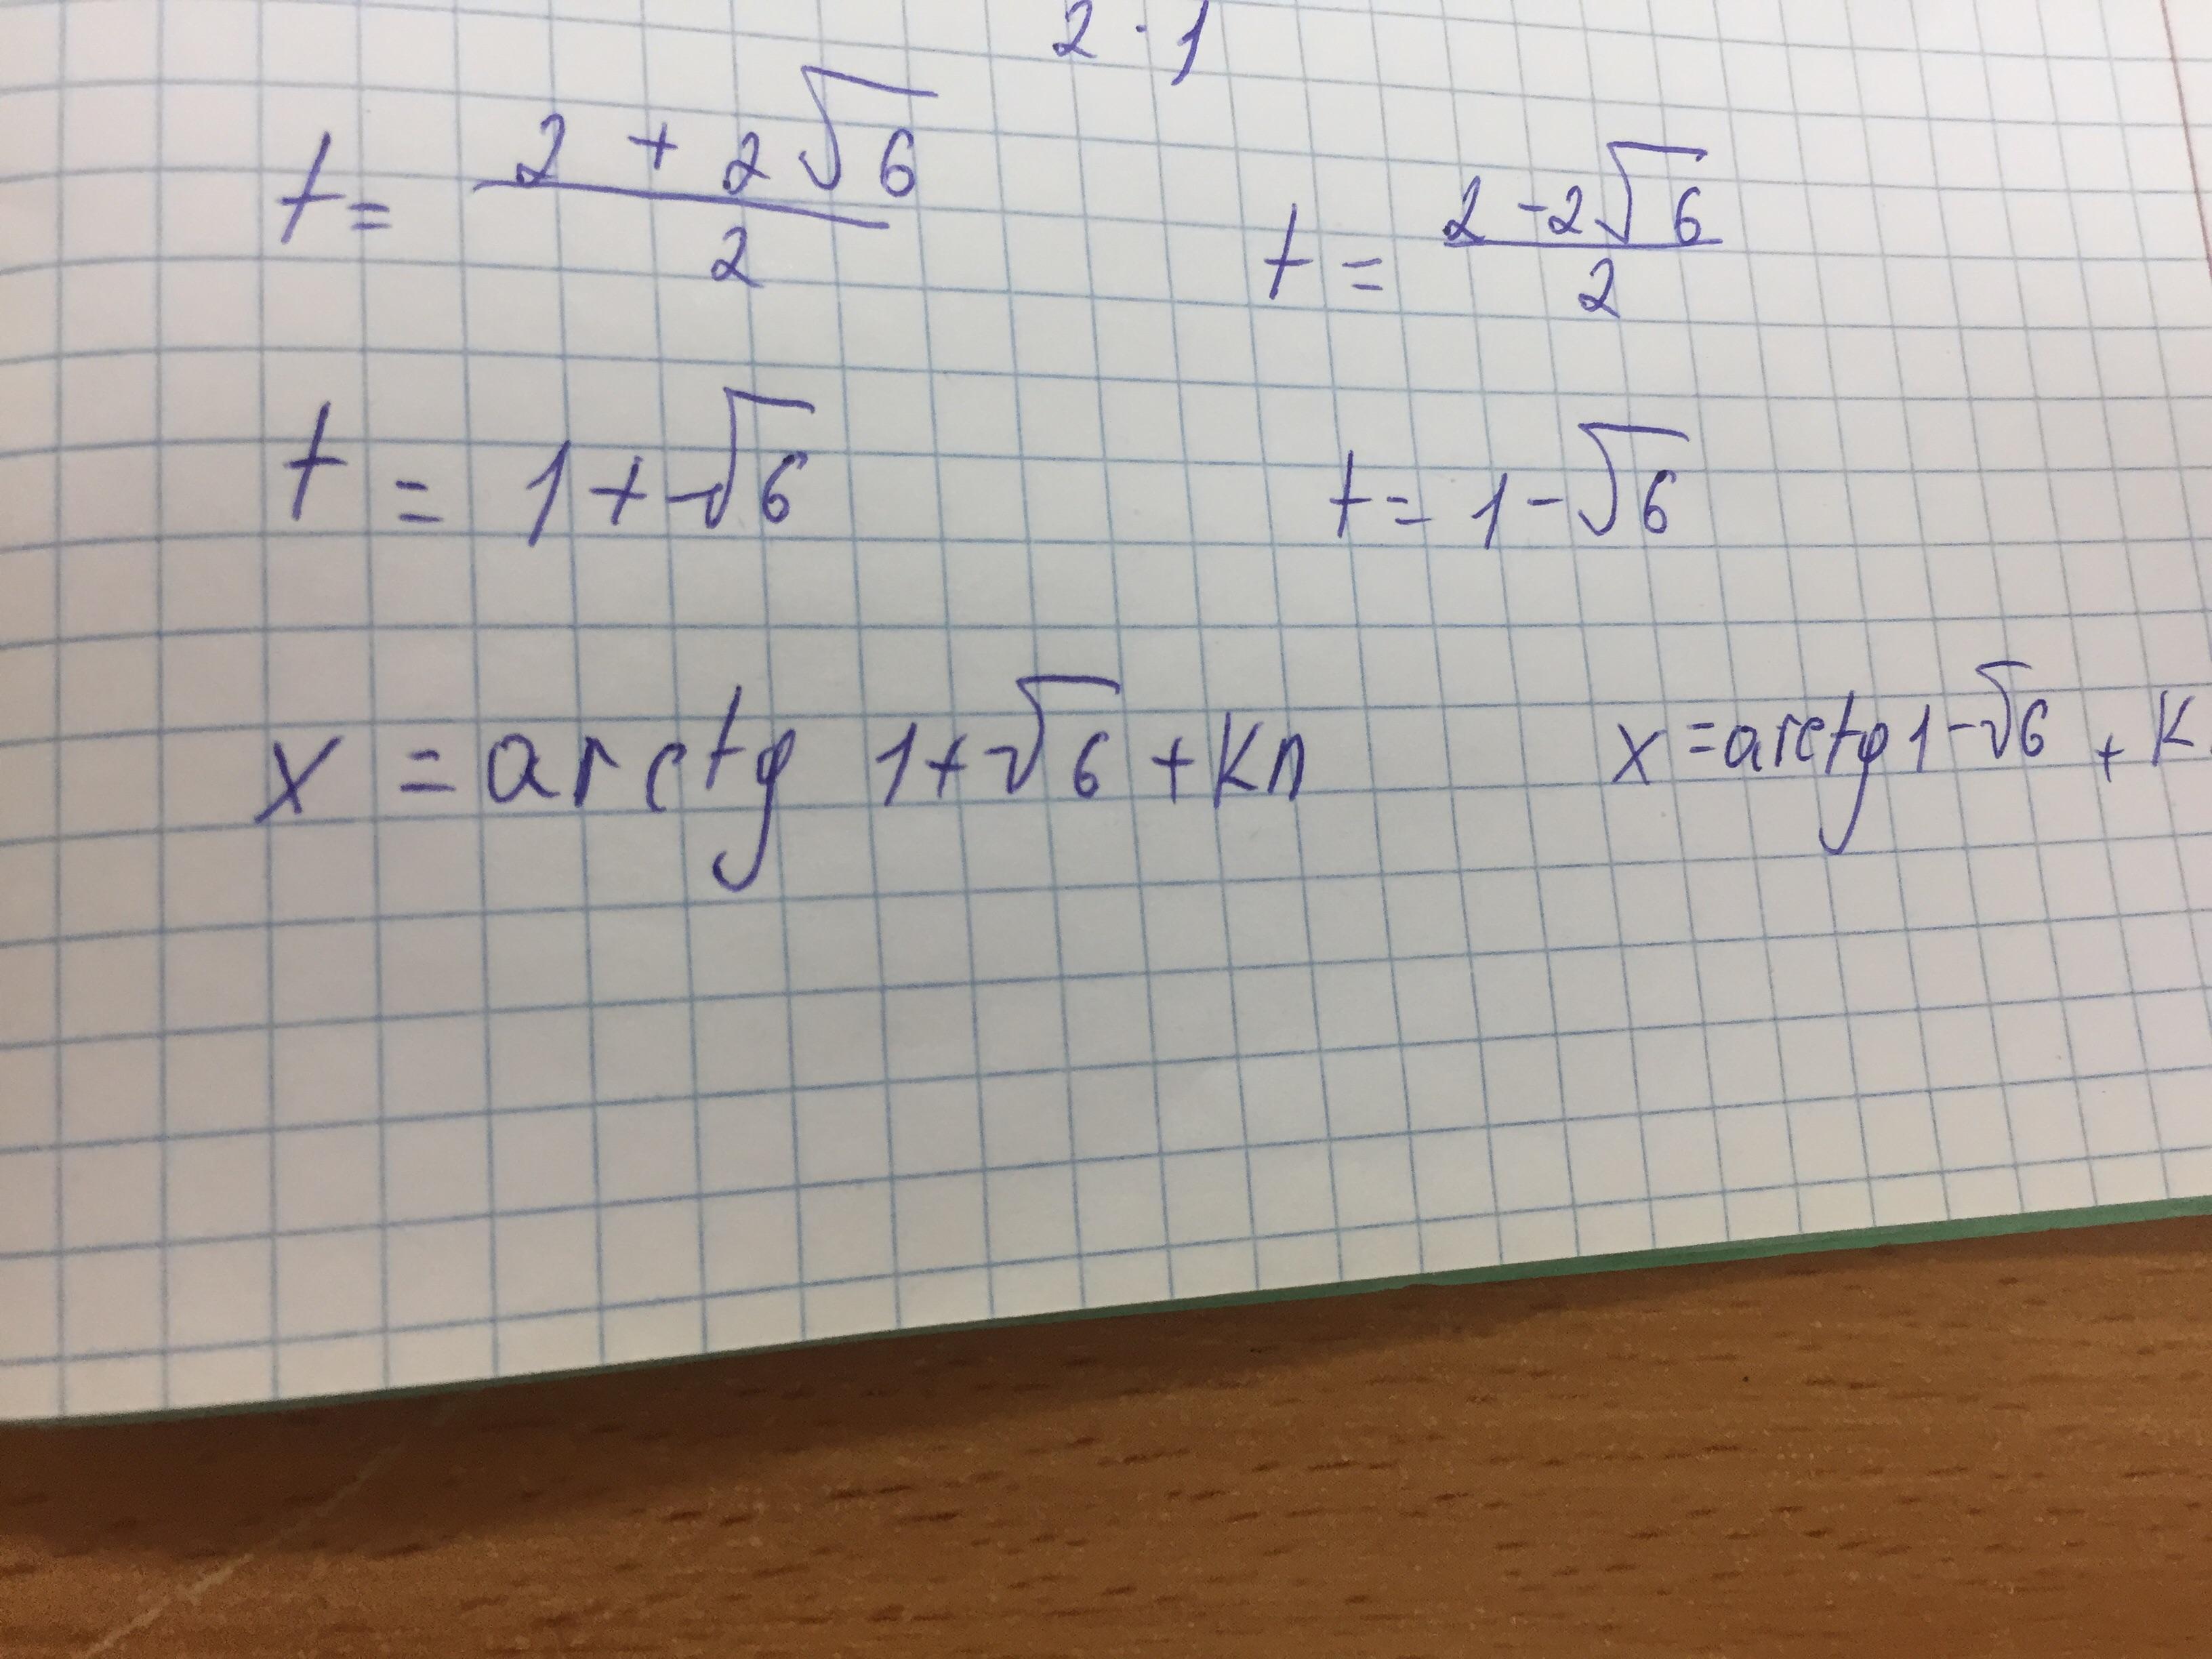 2 · 1
t = (2 + 2√6)/2 t = (2 - 2√6)/2
t = 1 + √6 t = 1 - √6
x = arctg 1 + √6 + кп x = arctg 1 - √6 + к